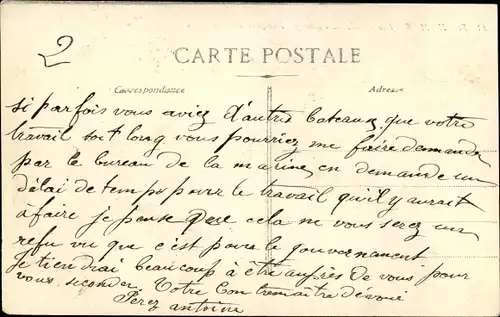 2
CARTE POSTALE
Correspondance
Adresse
si parfois vous aviez d'autres bateaux que votre
travail soit long vous pourriez me faire demander
par le bureau de la marine en demande un
délai de temps pour le travail qu'il y aurait
à faire je pense que cela ne vous serez un
refu vu que c'est pour le gouvernement
je tiendrai beaucoup à être auprès de vous pour
vous seconder. Votre Contremaître dévoué
Pérez antoine